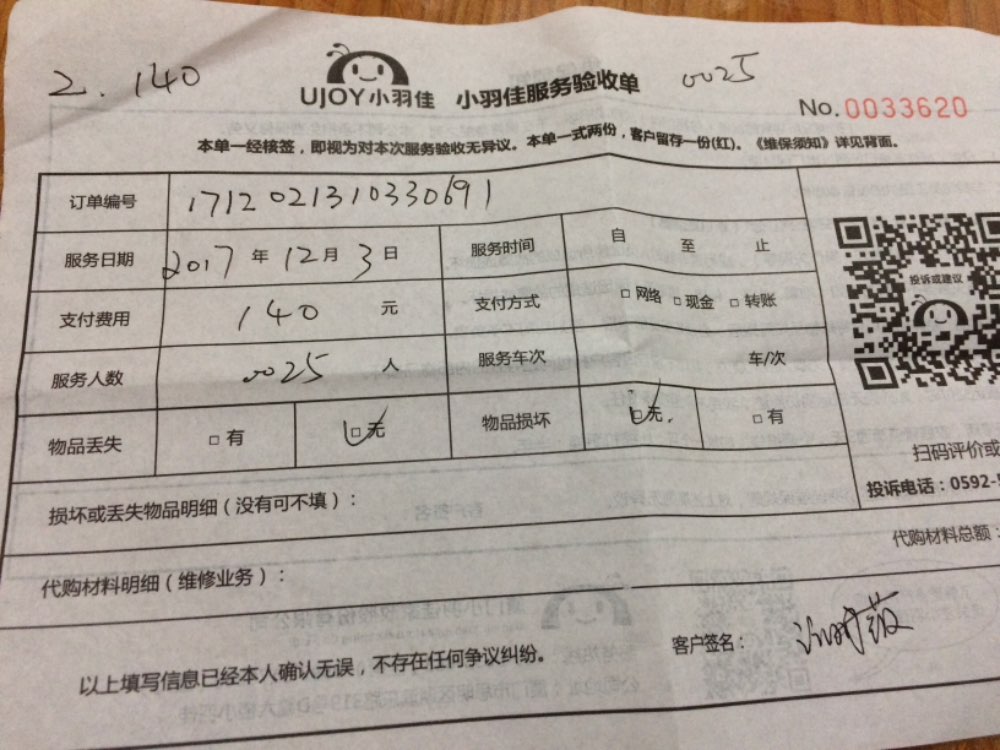 2.140
UJOY小羽佳 小羽佳服务验收单 0025
No.0033620
本单一经核签，即视为对本次服务验收无异议。本单一式两份，客户留存一份(红)。《维保须知》详见背面。
订单编号 1712021310330691
服务日期 2017年12月3日 服务时间 自 至 止
支付费用 140 元 支付方式 □网络 □现金 □转账
服务人数 0025 人 服务车次 车/次
物品丢失 □有 □无 物品损坏 □无 □有
投诉或建议
扫码评价或
投诉电话：0592-
损坏或丢失物品明细（没有可不填）：
代购材料总额：
代购材料明细（维修业务）：
客户签名：
以上填写信息已经本人确认无误，不存在任何争议纠纷。